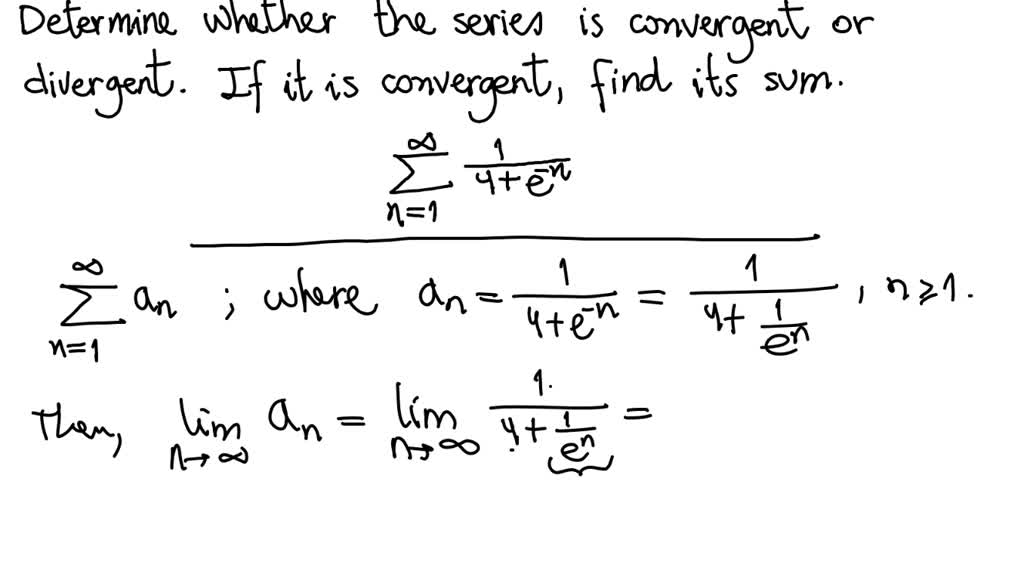 Determine whether the series is convergent or
divergent. If it is convergent, find its sum.
∞ ∑ n=1 1/(4+e^-n)
∞ ∑ n=1 an ; where an = 1/(4+e^-n) = 1/(4+1/e^n) , n ≥ 1.
Then, lim n→∞ an = lim n→∞ 1/(4+1/e^n) =